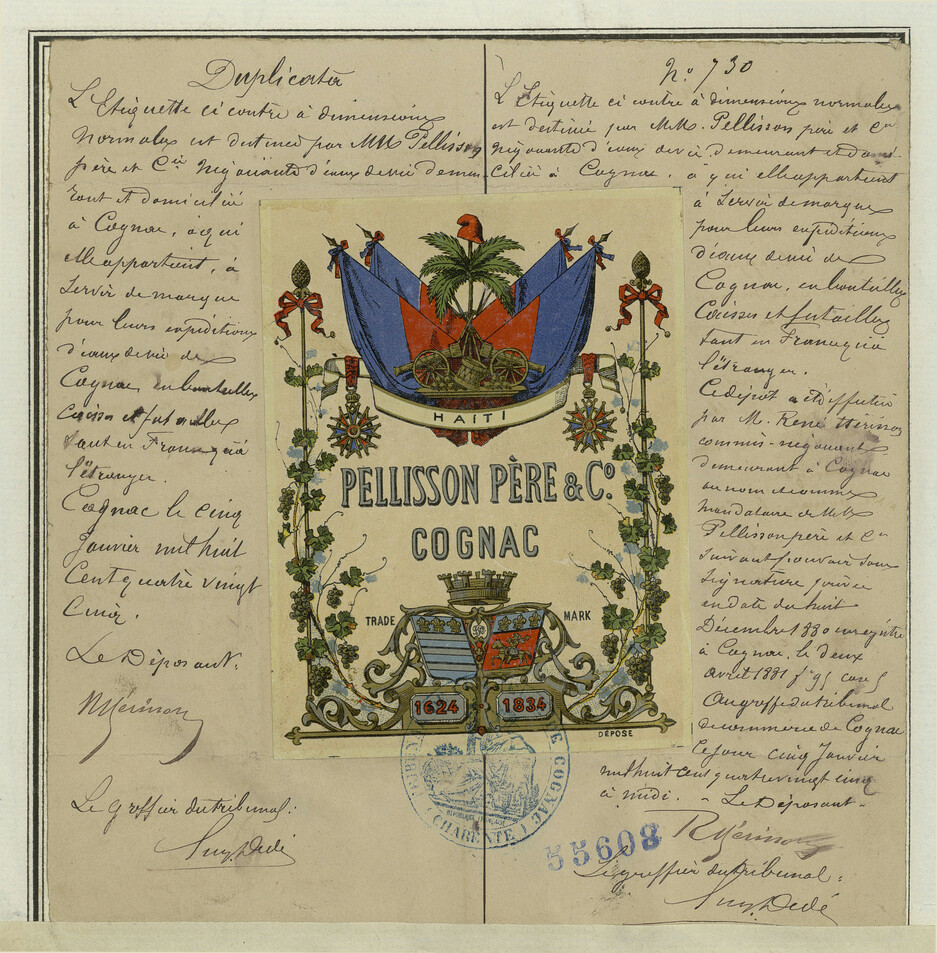 Duplicata
L'Etiquette ci contre à dimensions
normales est destinée par MM Pellisson
père et Cie Négociants d'eaux de vie demeu
rant et domicilié
à Cognac, à qui
elle appartient, à
servir de marque
pour leurs expéditions
d'eaux de vie de
Cognac en bouteilles
Caisses et futailles
tant en France qu'à
l'étranger.
Cognac le cinq
Janvier mil huit
Cent quatre vingt
Cinq.
Le Déposant.
R Hérisson
Le Greffier du tribunal:
N° 730
L'Etiquette ci contre à dimensions normales
est destinée par MM. Pellisson père et Cie
négociants d'eaux de vie, demeurant et domi
ciliés à Cognac, à qui elle appartient
à servir de marque
pour leurs expéditions
d'eaux de vie de
Cognac, en bouteilles
Caisses et futailles
tant en France qu'à
l'étranger.
Ce dépôt a été effectué
par M. René Hérisson
commis-négociant
demeurant à Cognac
au nom et comme
mandataire de MM
Pellisson père et Cie
suivant pouvoir sous
signature privée
en date du huit
Décembre 1880 enregistré
à Cognac, le deux
avril 1881 f° 95 case 5
Au greffe du tribunal
de commerce de Cognac
Ce jour cinq Janvier
mil huit cent quatre vingt cinq
à midi. - Le Déposant -
R Hérisson
Le greffier du tribunal:
HAITI
PELLISSON PÈRE & Co.
COGNAC
TRADE MARK
1624 1834
DÉPOSÉ
TRIBUNAL DE COGNAC
RÉPUBLIQUE FRANÇAISE
(CHARENTE)
55608